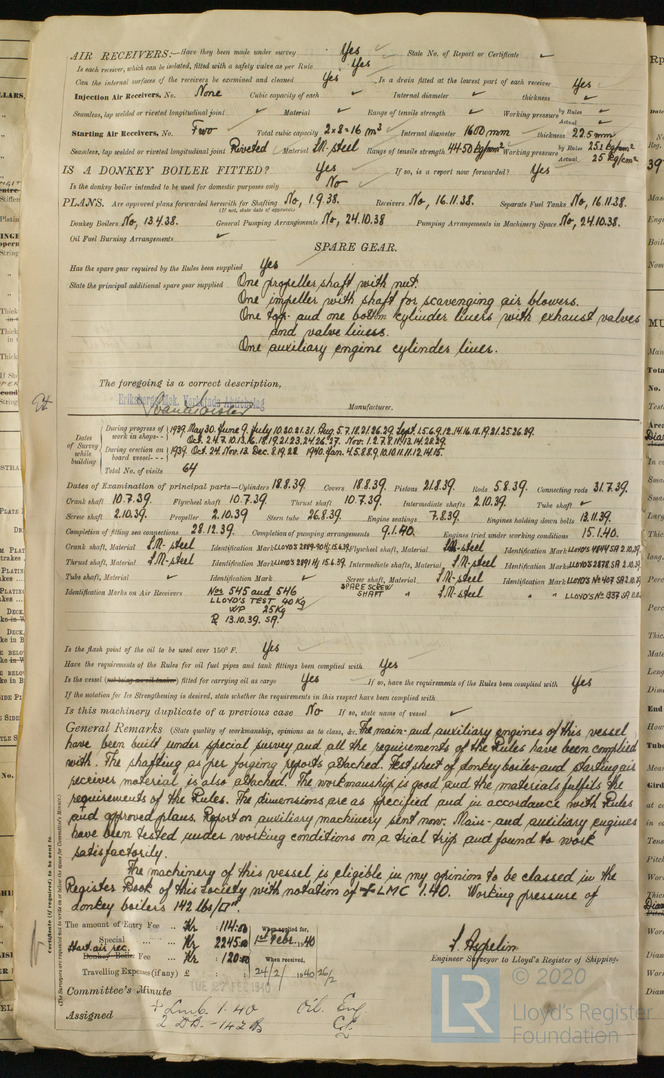 AIR RECEIVERS:—Have they been made under survey Yes State No. of Report or Certificate
Is each receiver, which can be isolated, fitted with a safety valve as per Rule Yes
Can the internal surfaces of the receivers be examined and cleaned Yes Is a drain fitted at the lowest part of each receiver Yes
Injection Air Receivers, No. None Cubic capacity of each Internal diameter thickness
Seamless, lap welded or riveted longitudinal joint Material Range of tensile strength Working pressure by Rules Actual
Starting Air Receivers, No. Two Total cubic capacity 2x8=16 m³ Internal diameter 1600 mm thickness 22.5 mm
Seamless, lap welded or riveted longitudinal joint Riveted Material SM-steel Range of tensile strength 44-50 kg/mm² Working pressure by Rules Actual 25 kg/cm²
IS A DONKEY BOILER FITTED? Yes If so, is a report now forwarded? Yes
Is the donkey boiler intended to be used for domestic purposes only No
PLANS. Are approved plans forwarded herewith for Shafting No, 1.9.38. Receivers No, 16.11.38. Separate Fuel Tanks No, 16.11.38.
(If not, state date of approval)
Donkey Boilers No, 13.4.38. General Pumping Arrangements No, 24.10.38 Pumping Arrangements in Machinery Space No, 24.10.38.
Oil Fuel Burning Arrangements
SPARE GEAR.
Has the spare gear required by the Rules been supplied Yes
State the principal additional spare gear supplied One propeller shaft with nut.
One impeller with shaft for scavenging air blowers.
One top and one bottom cylinder liners with exhaust valves
and valve liners.
One auxiliary engine cylinder liner.
The foregoing is a correct description,
Manufacturer.
Dates of Survey while building
During progress of work in shops - - 1939 May.30. June 9. July 10.20.21.31. Aug. 5.7.18.21.26.29. Sept. 1.5.6.9.12.14.16.18.19.21.25.26.29.
Oct. 2.4.7.10.13.16.18.19.21.23.24.26.27. Nov. 1.2.7.8.11.13.14.28.29.
During erection on board vessel - - - 1939. Oct. 24. Nov. 13. Dec. 8.19.28 1940. Jan. 4.5.8.9.10.11.12.14.15.
Total No. of visits 64
Dates of Examination of principal parts—Cylinders 18.8.39. Covers 18.8.39. Pistons 21.8.39. Rods 5.8.39. Connecting rods 31.7.39.
Crank shaft 10.7.39. Flywheel shaft 10.7.39. Thrust shaft 10.7.39. Intermediate shafts 2.10.39. Tube shaft
Screw shaft 2.10.39. Propeller 2.10.39. Stern tube 26.8.39. Engine seatings 7.8.39. Engines holding down bolts 13.11.39.
Completion of fitting sea connections 28.12.39. Completion of pumping arrangements 9.1.40. Engines tried under working conditions 15.1.40.
Crank shaft, Material S.M-steel Identification Mark Flywheel shaft, Material S.M-steel Identification Mark
Thrust shaft, Material S.M-steel Identification Mark Intermediate shafts, Material S.M-steel Identification Mark
Tube shaft, Material Identification Mark Screw shaft, Material S.M-steel Identification Mark
SPARE SCREW SHAFT " S.M-steel "
Identification Marks on Air Receivers Nos 545 and 546
LLOYD'S TEST 40 KG
WP 25 KG
13.10.39. SA.
Is the flash point of the oil to be used over 150° F. Yes
Have the requirements of the Rules for oil fuel pipes and tank fittings been complied with Yes
Is the vessel (not being an oil tanker) fitted for carrying oil as cargo Yes If so, have the requirements of the Rules been complied with Yes
If the notation for Ice Strengthening is desired, state whether the requirements in this respect have been complied with
Is this machinery duplicate of a previous case No If so, state name of vessel
General Remarks (State quality of workmanship, opinions as to class, &c. The main- and auxiliary engines of this vessel
have been built under special survey and all the requirements of the Rules have been complied
with. The shafting as per forging reports attached. Test sheet of donkey boiler- and starting air
receiver material is also attached. The workmanship is good and the materials fulfils the
requirements of the Rules. The dimensions are as specified and in accordance with Rules
and approved plans. Report on auxiliary machinery sent now. Main- and auxiliary engines
have been tested under working conditions on a trial trip and found to work
satisfactorily.
The machinery of this vessel is eligible in my opinion to be classed in the
Register Book of this Society with notation of + LMC 1.40. Working pressure of
donkey boilers 142 lbs/□".
The amount of Entry Fee .. Kr : 114:00 When applied for,
Special .. Kr 2245.00 1st Febr. 1940
Start. air rec.
Donkey Boiler Fee .. Kr : 120:00 When received,
Travelling Expenses (if any) £ : : 24/2/ 1940 26/2
Engineer Surveyor to Lloyd's Register of Shipping.
Committee's Minute TUE 27 FEB 1940
Assigned + Lmb. 1.40 Oil. Eng
2 DB. - 142 lb
Certificate (if required) to be sent to
(The Surveyors are requested not to write on or below the space for Committee's Minute.)
LR
© 2020
Lloyd's Register
Foundation